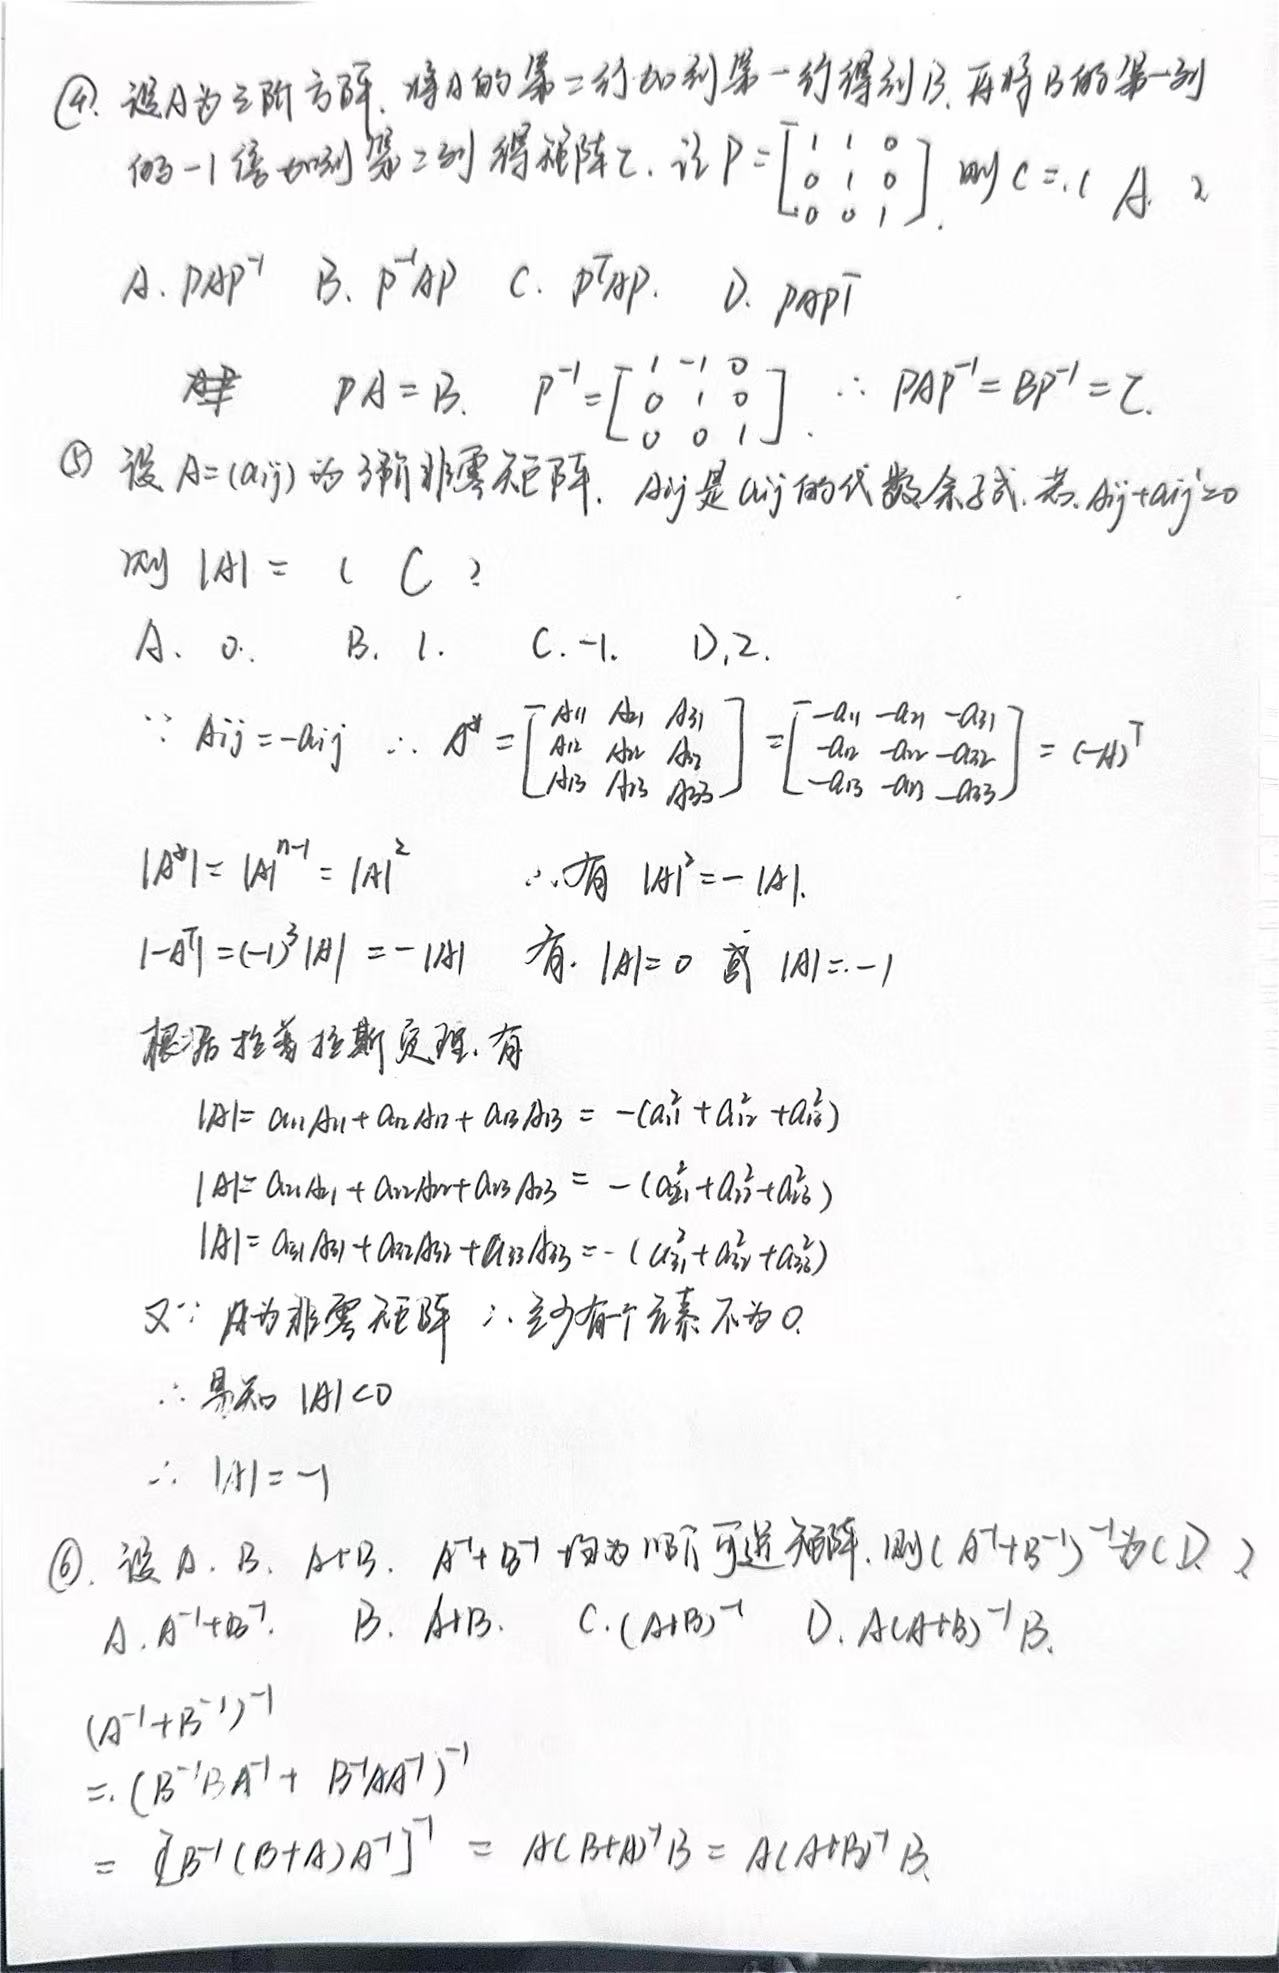 ④. 设A为三阶方阵. 将A的第二行加到第一行得到B. 再将B的第一列
的-1倍加到第二列得矩阵C. 记P=[1 1 0; 0 1 0; 0 0 1]. 则C=( A )
A. PAP⁻¹ B. P⁻¹AP C. PᵀAP. D. PAPᵀ
PA=B. P⁻¹=[1 -1 0; 0 1 0; 0 0 1]. ∴ PAP⁻¹=BP⁻¹=C.
⑤ 设A=(aij)为3阶非零矩阵. Aij是aij的代数余子式. 若Aij+aij=0
则 |A| = ( C )
A. 0. B. 1. C. -1. D. 2.
∵ Aij=-aij ∴ A*=[A11 A21 A31; A12 A22 A32; A13 A23 A33]=[-a11 -a21 -a31; -a12 -a22 -a32; -a13 -a23 -a33]=(-A)ᵀ
|A*|=|A|ⁿ⁻¹=|A|² ∴有 |A|²=-|A|.
|-Aᵀ|=(-1)³|A|=-|A| 有. |A|=0 或 |A|=-1
根据拉普拉斯定理. 有
|A|=a11A11+a12A12+a13A13=-(a11²+a12²+a13²)
|A|=a21A21+a22A22+a23A23=-(a21²+a22²+a23²)
|A|=a31A31+a32A32+a33A33=-(a31²+a32²+a33²)
又∵ A为非零矩阵 ∴至少有一个元素不为0.
∴易知 |A|<0
∴ |A|=-1
⑥. 设A. B. A+B. A⁻¹+B⁻¹ 均为n阶可逆矩阵. 则(A⁻¹+B⁻¹)⁻¹为( D )
A. A⁻¹+B⁻¹. B. A+B. C. (A+B)⁻¹ D. A(A+B)⁻¹B.
(A⁻¹+B⁻¹)⁻¹
=(B⁻¹BA⁻¹+B⁻¹AA⁻¹)⁻¹
=[B⁻¹(B+A)A⁻¹]⁻¹=A(B+A)⁻¹B=A(A+B)⁻¹B.